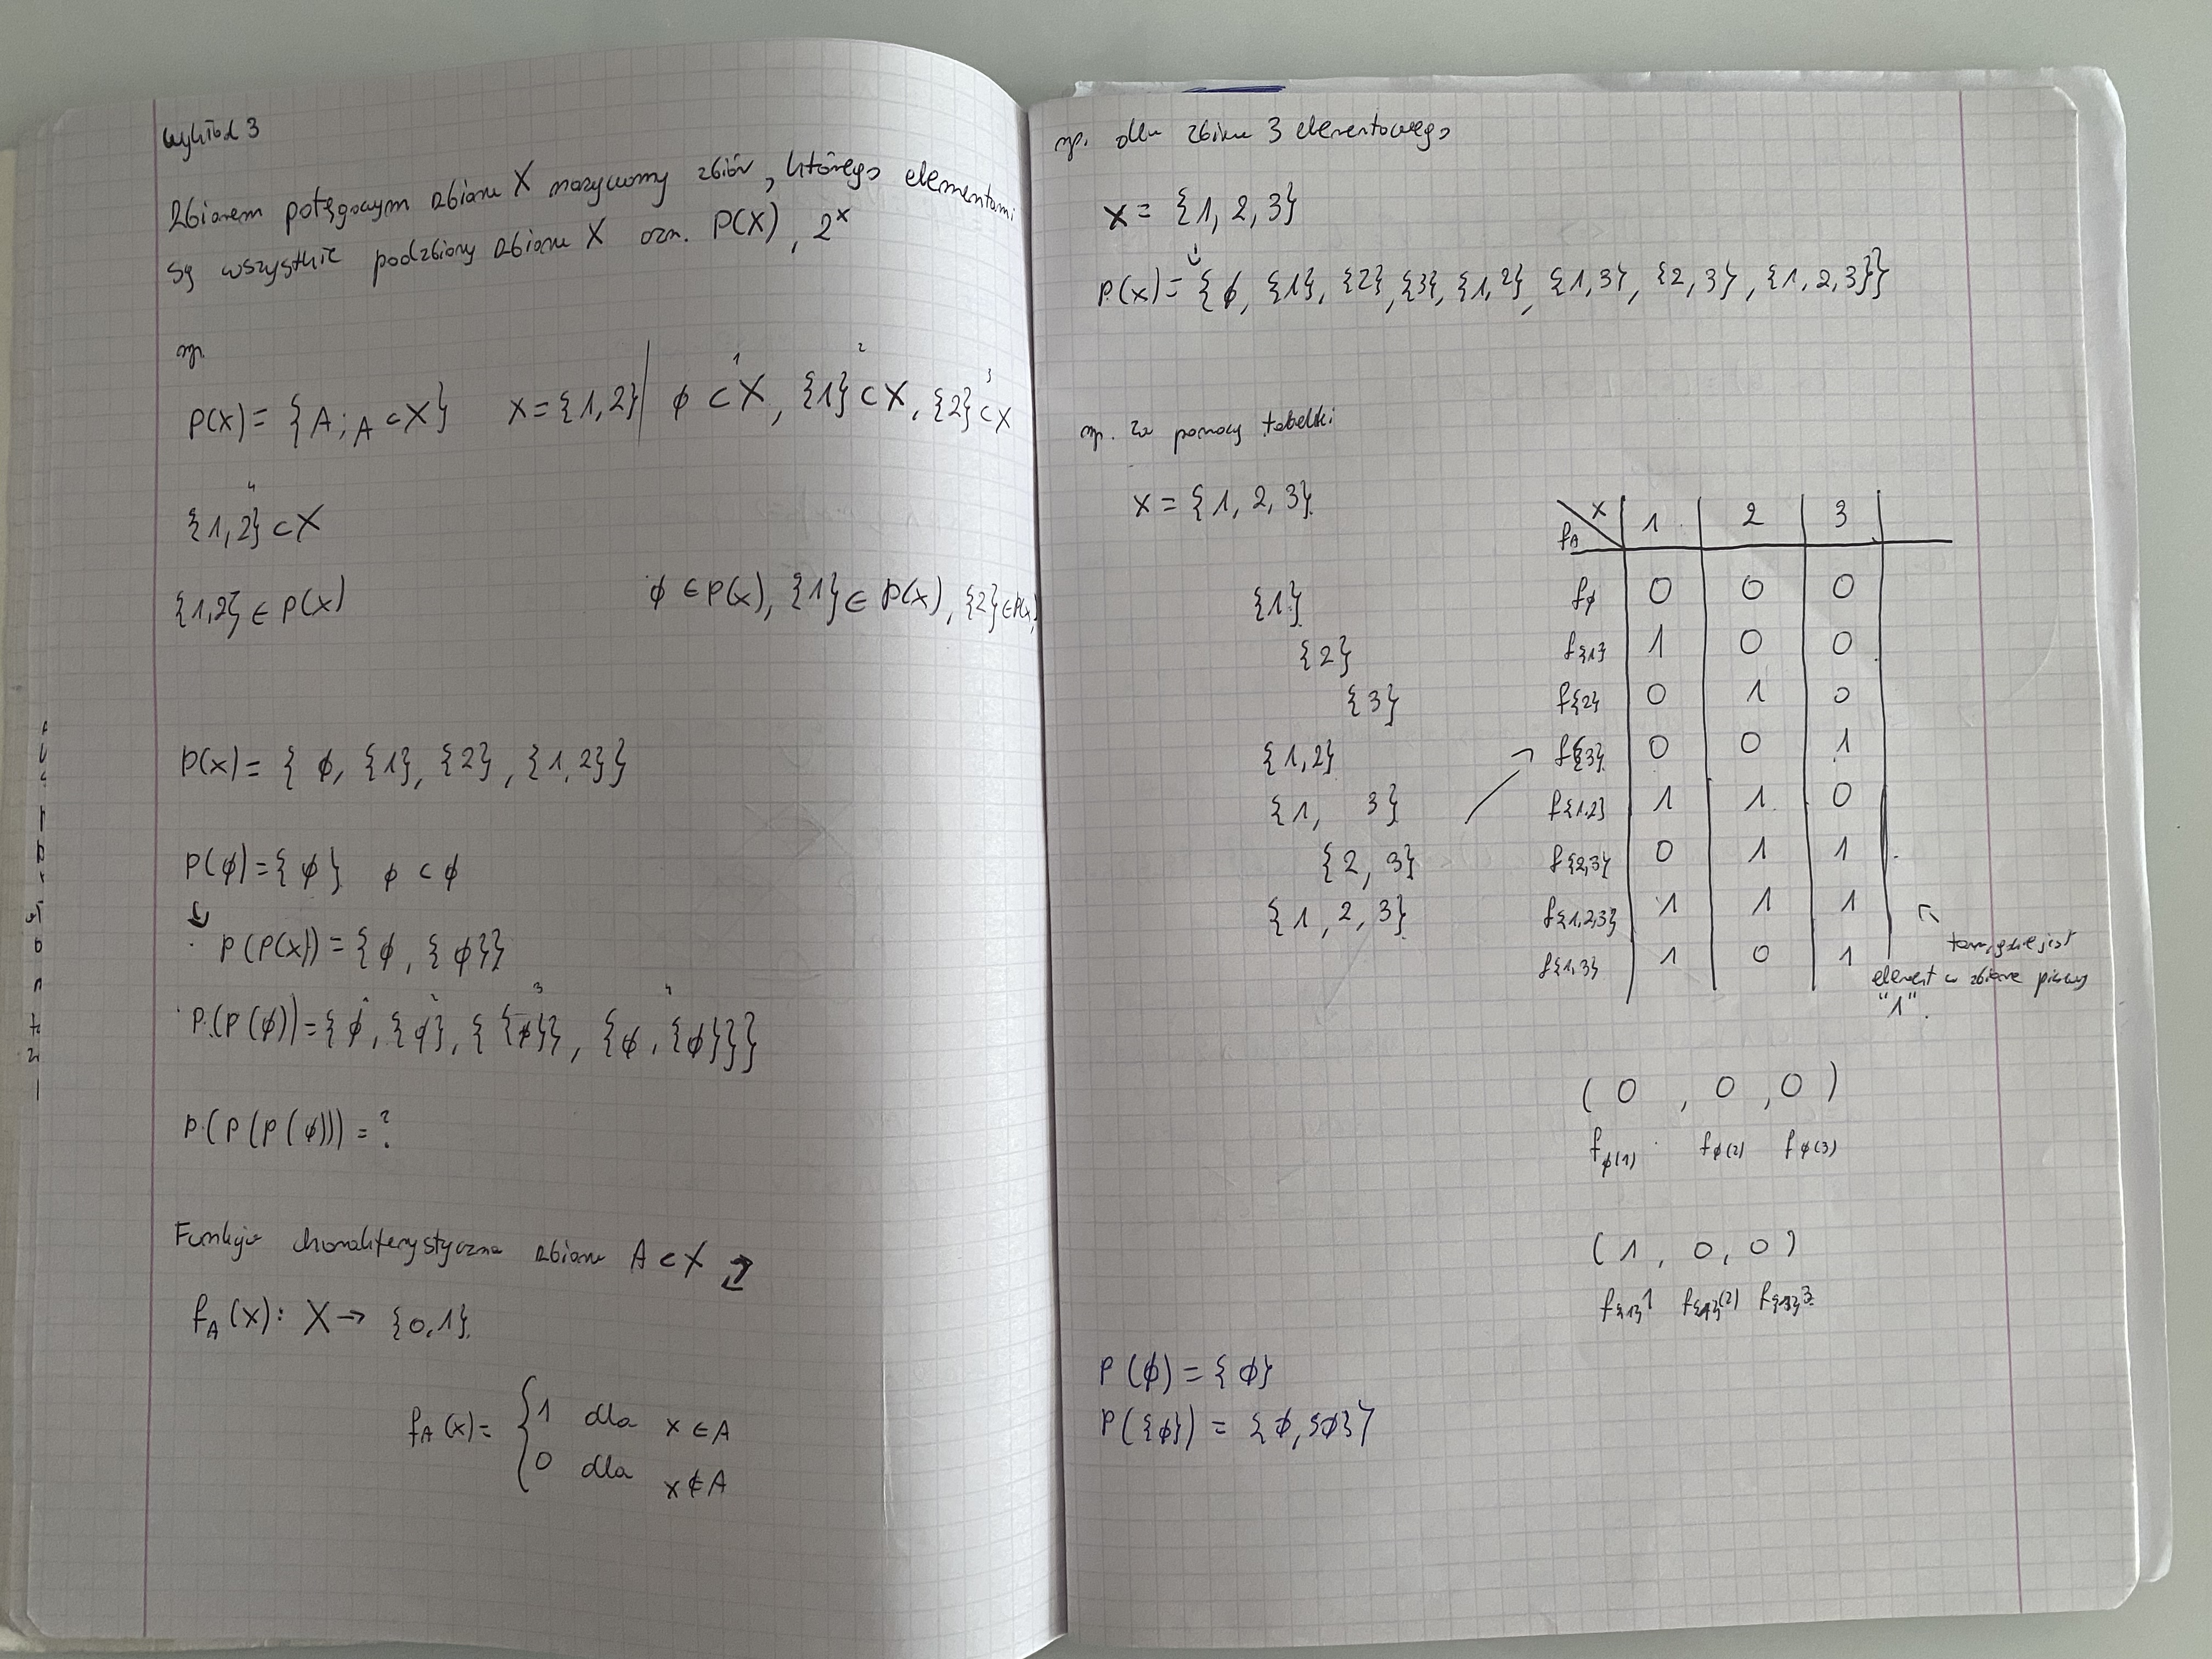 Wykład 3
Zbiorem potęgowym zbioru X nazywamy zbiór, którego elementami
są wszystkie podzbiory zbioru X ozn. P(X), 2^x
np.
P(X) = {A; A ⊂ X} X = {1,2} | ∅ ⊂ X, {1} ⊂ X, {2} ⊂ X
1 2 3
4
{1,2} ⊂ X
{1,2} ∈ P(X) ∅ ∈ P(X), {1} ∈ P(X), {2} ∈ P(X)
P(x) = { ∅, {1}, {2}, {1,2}}
P(∅) = {∅} ∅ ⊂ ∅
↓
P(P(x)) = {∅, {∅}}
P(P(∅)) = {∅, {∅}, {{∅}}, {∅, {∅}}}
1 2 3 4
P(P(P(∅))) = ?
Funkcja charakterystyczna zbioru A ⊂ X
f_A(x): X → {0,1}
f_A(x) = { 1 dla x ∈ A
0 dla x ∉ A
np. dla zbioru 3 elementowego
X = {1, 2, 3}
↓
P(x) = {∅, {1}, {2}, {3}, {1,2}, {1,3}, {2,3}, {1,2,3}}
np. za pomocy tabelki
X = {1, 2, 3}
{1}
{2}
{3}
{1,2}
{1, 3}
{2, 3}
{1, 2, 3}
f_A \ X 1 2 3
f_∅ 0 0 0
f_{1} 1 0 0
f_{2} 0 1 0
f_{3} 0 0 1
f_{1,2} 1 1 0
f_{2,3} 0 1 1
f_{1,2,3} 1 1 1
f_{1,3} 1 0 1
tam, gdzie jest
element w zbiorze piszemy
"1".
( 0 , 0 , 0 )
f_∅(1) f_∅(2) f_∅(3)
( 1, 0, 0 )
f_{1}1 f_{1}(2) f_{1}3
P(∅) = {∅}
P({∅}) = {∅, {∅}}